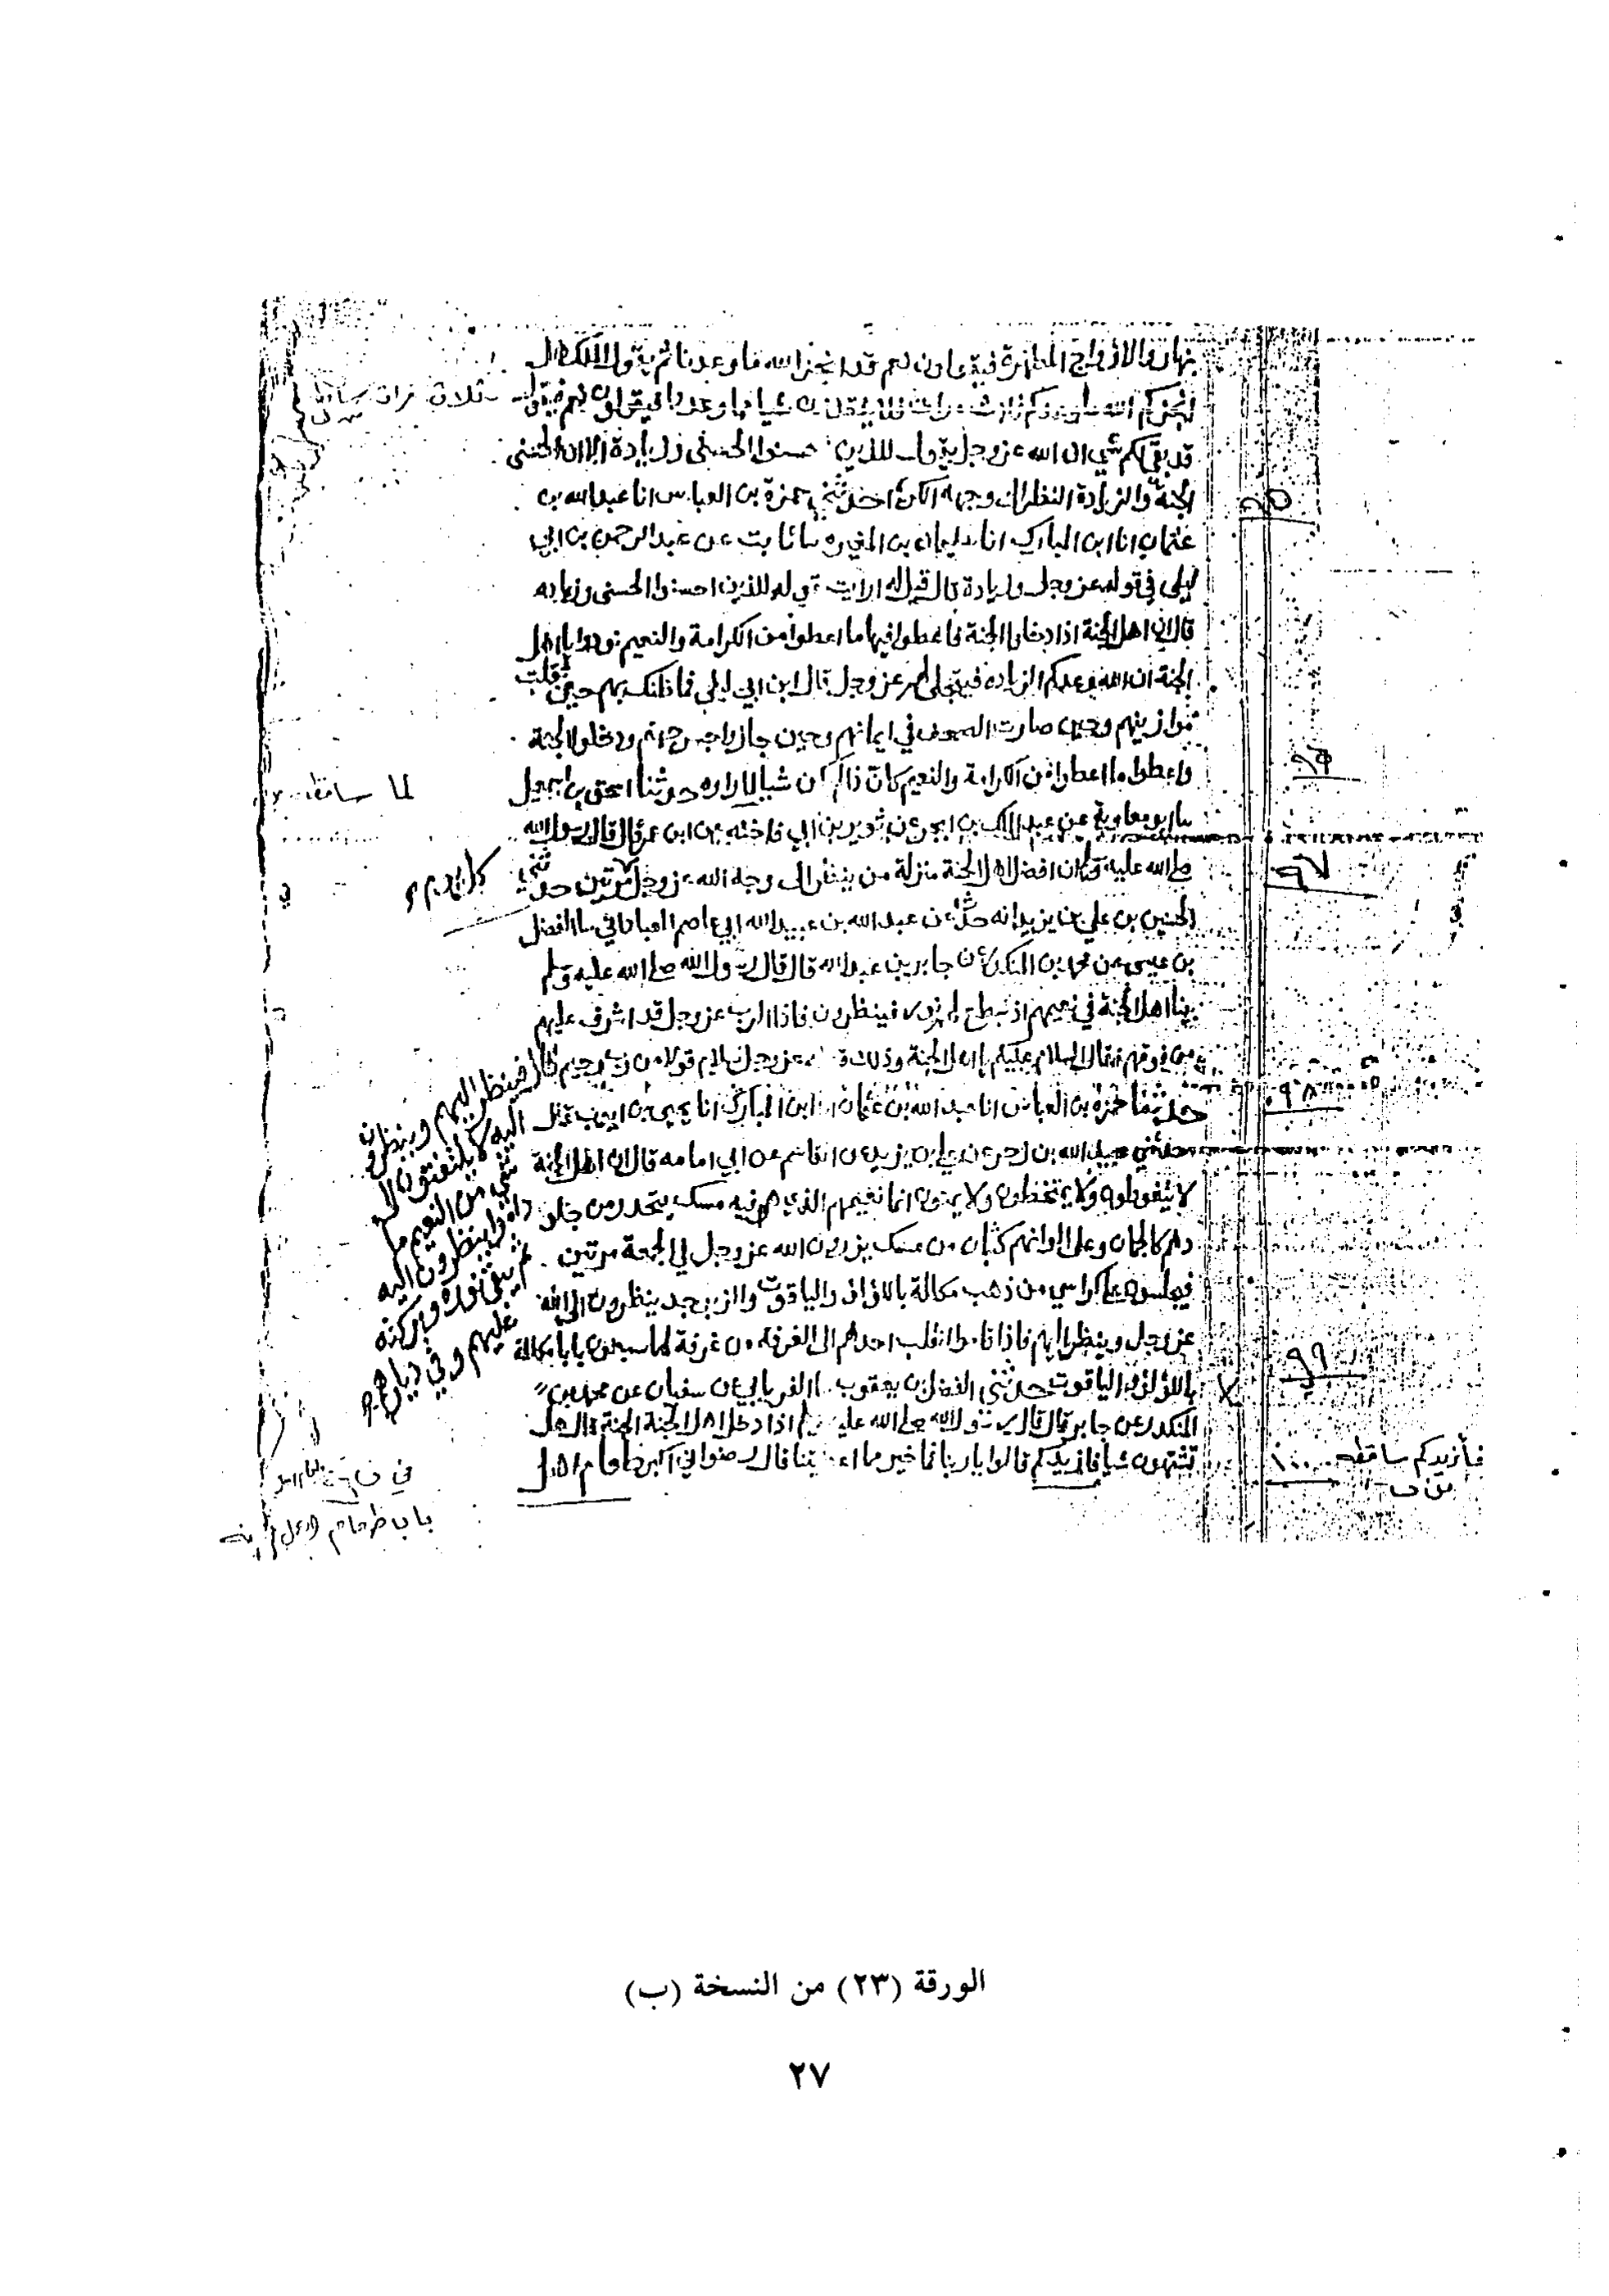 والأزواج المطهرة فيقولون نعم قد انجز الله ما وعدنا ثم يقول الملك هل
انجزكم الله ما وعدكم ثلاث مرات فلا يفقدون شيا مما وعدوا فيقولون نعم فيقول
قد بقي لكم شي ان الله عز وجل يقول للذين احسنوا الحسنى وزيادة الا ان الحسنى
الجنة والزيادة النظر الى وجهه الكريم حدثني حمزة بن العباس انا عبد الله بن
عثمان انا ابن المبارك انا سليمان بن المغيره نا ثابت عن عبد الرحمن بن ابي
ليلى في قوله عز وجل وزيادة قال قيل له ارايت قوله للذين احسنوا الحسنى وزياده
قال ان اهل الجنة اذا دخلوا الجنة فاعطوا فيها ما اعطوا من الكرامة والنعيم نودوا يا اهل
الجنة ان الله وعدكم الزياده فيتجلى لهم عز وجل قال ابن ابي ليلى فما ظنك بهم حين ثقلت
موازينهم وحين صارت الصحف في ايمانهم وحين جازوا جسر جهنم ودخلوا الجنة
واعطوا ما اعطوا من الكرامة والنعيم كان ذاك كان شيا لم يروه حدثنا اسحق بن اسمعيل
نا ابو معاوية عن عبد الملك بن ابجر عن ثوير بن ابي فاخته عن ابن عمر قال قال رسول الله
صلى الله عليه وسلم ان افضل اهل الجنة منزلة من ينظر الى وجه الله عز وجل مرتين حدثني
كل يوم
الحسين بن علي بن يزيد انه حدث عن عبد الله بن عبيد الله ابي عاصم العباداني نا الفضل
بن عيسى عن محمد بن المنكدر عن جابر بن عبد الله قال قال رسول الله صلى الله عليه وسلم
بينا اهل الجنة في نعيمهم اذ سطع لهم نور فينظرون فاذا الرب عز وجل قد اشرف عليهم
من فوقهم فقال السلام عليكم يا اهل الجنة وذلك قوله عز وجل سلام قولا من رب رحيم قال
فينظر اليهم وينظرون
اليه لا يلتفتون الى
شي من النعيم ما
داموا ينظرون اليه
ثم يبقى نوره وبركته
عليهم وفي ديارهم
حدثنا حمزة بن العباس انا عبد الله بن عثمان انا ابن المبارك انا يحيى بن ايوب قال
حدثني عبيد الله بن زحر عن علي بن يزيد عن القاسم عن ابي امامه قال ان اهل الجنة
لا يتغوطون ولا يتمخطون ولا يمنون انما نعيمهم الذي هم فيه مسك يتحدر من جلو
دهم كالجمان وعلى ابوابهم كثبان من مسك يزورون الله عز وجل في الجمعة مرتين
فيجلسون على كراسي من ذهب مكللة باللؤلؤ والياقوت والزبرجد ينظرون الى الله
عز وجل وينظر اليهم فاذا قاموا انقلب احدهم الى الغرفة من غرفة لها سبعون بابا مكللة
باللؤلؤ والياقوت حدثني الفضل بن يعقوب نا الفريابي عن سفيان عن محمد بن
المنكدر عن جابر قال قال رسول الله صلى الله عليه وسلم اذا دخل اهل الجنة الجنة قال هل
تشتهون شيا فازيدكم قالوا يا ربنا فما خير ما اعطيتنا قال رضواني اكبر طعام اهل
ثلاث مرات
لما ساقطة
٩٥
٩٦
٩٧
٩٨
٩٩
١٠٠
فأزيدكم ساقطة
من ب
باب طعام اهل الجنة
الورقة (٢٣) من النسخة (ب)
٢٧